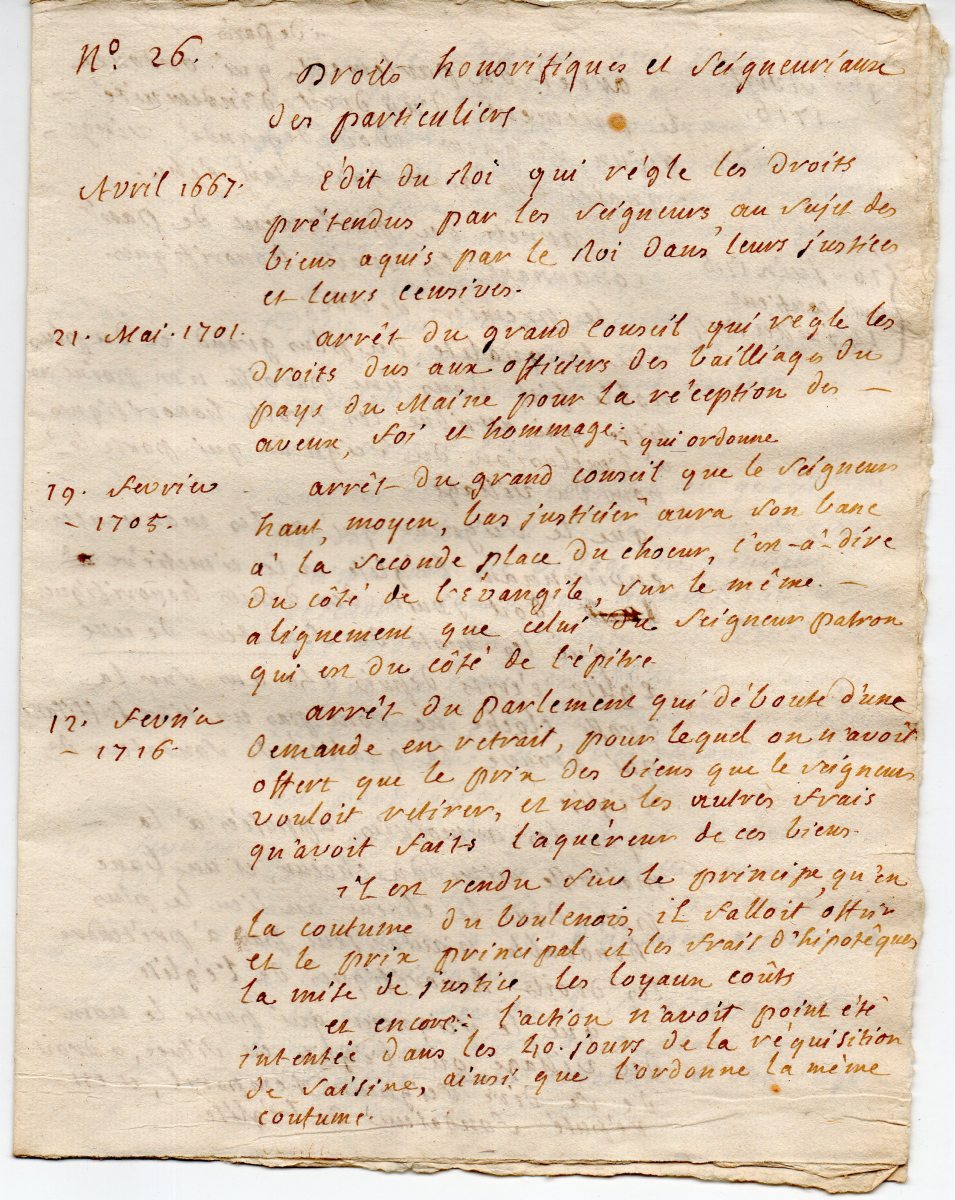 N.º 26.
Droits honorifiques et seigneuriaux
des particuliers.
Avril 1667.
Édit du Roi qui régle les droits
prétendus par les seigneurs, au sujet des
biens aquis par le Roi dans leurs justices
et leurs censives.
21. Mai. 1701.
arrêt du grand conseil qui régle les
droits dus aux officiers des bailliages du
pays du Maine pour la réception des –
aveux, foi et hommage.
qui ordonne
19. fevrier
– 1705.
arrêt du grand conseil que le seigneur
haut, moyen, bas justicier aura son banc
à la seconde place du choeur, c'en-à-dire
du côté de l'Évangile, sur le même –
alignement que celui du seigneur patron
qui en du côté de l'épitre.
12. fevrier
– 1716.
arrêt du parlement qui déboute d'une
demande en retrait, pour lequel on n'avoit
offert que le prix des biens que le seigneur
vouloit retirer, et non les autres frais
qu'avoit faits l'aquéreur de ces biens.
il en rendu sur le principe, qu'en
la coutume du boulenois, il falloit offrir
et le prix principal et les frais d'hipotêques
la mise de justice, les loyaux coûts
et encore: l'action n'avoit point été
intentée dans les 40. jours de la réquisition
de saisine, ainsi que l'ordonne la même
coutume.